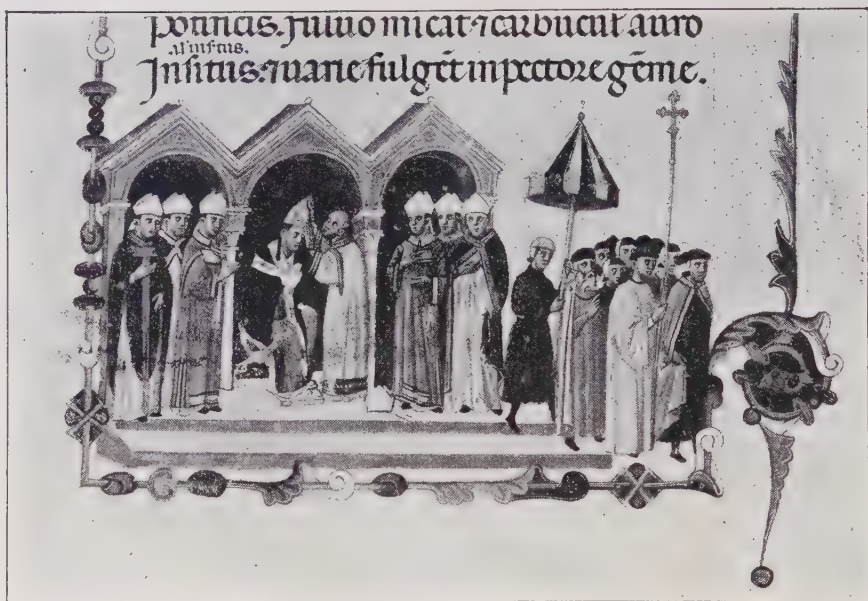 pōtificis. fuluo micat ⁊ carbūcul' auro
al' insitus.
Insitus. ⁊ uarie fulgēt in pectore gēme.